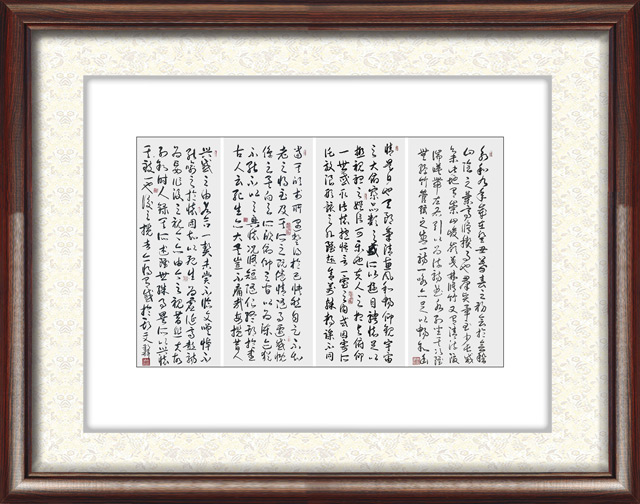 永和九年歲在癸丑暮春之初會於會稽
山陰之蘭亭修禊事也群賢畢至少長咸
集此地有崇山峻嶺茂林修竹又有清流激
湍映帶左右引以為流觴曲水列坐其次雖
無絲竹管弦之盛一觴一詠亦足以暢敘幽
情是日也天朗氣清惠風和暢仰觀宇宙
之大俯察品類之盛所以遊目騁懷足以
極視聽之娛信可樂也夫人之相與俯仰
一世或取諸懷抱悟言一室之內或因寄所
託放浪形骸之外雖趣舍萬殊靜躁不同
當其欣於所遇暫得於己快然自足不知
老之將至及其所之既倦情隨事遷感慨
係之矣向之所欣俯仰之間以為陳迹猶
不能不以之興懷況修短隨化終期於盡
古人云死生亦大矣豈不痛哉每攬昔人
興感之由若合一契未嘗不臨文嗟悼不
能喻之於懷固知一死生為虛誕齊彭殤
為妄作後之視今亦由今之視昔悲夫故
列敘時人錄其所述雖世殊事異所以興懷
其致一也後之攬者亦將有感於斯文